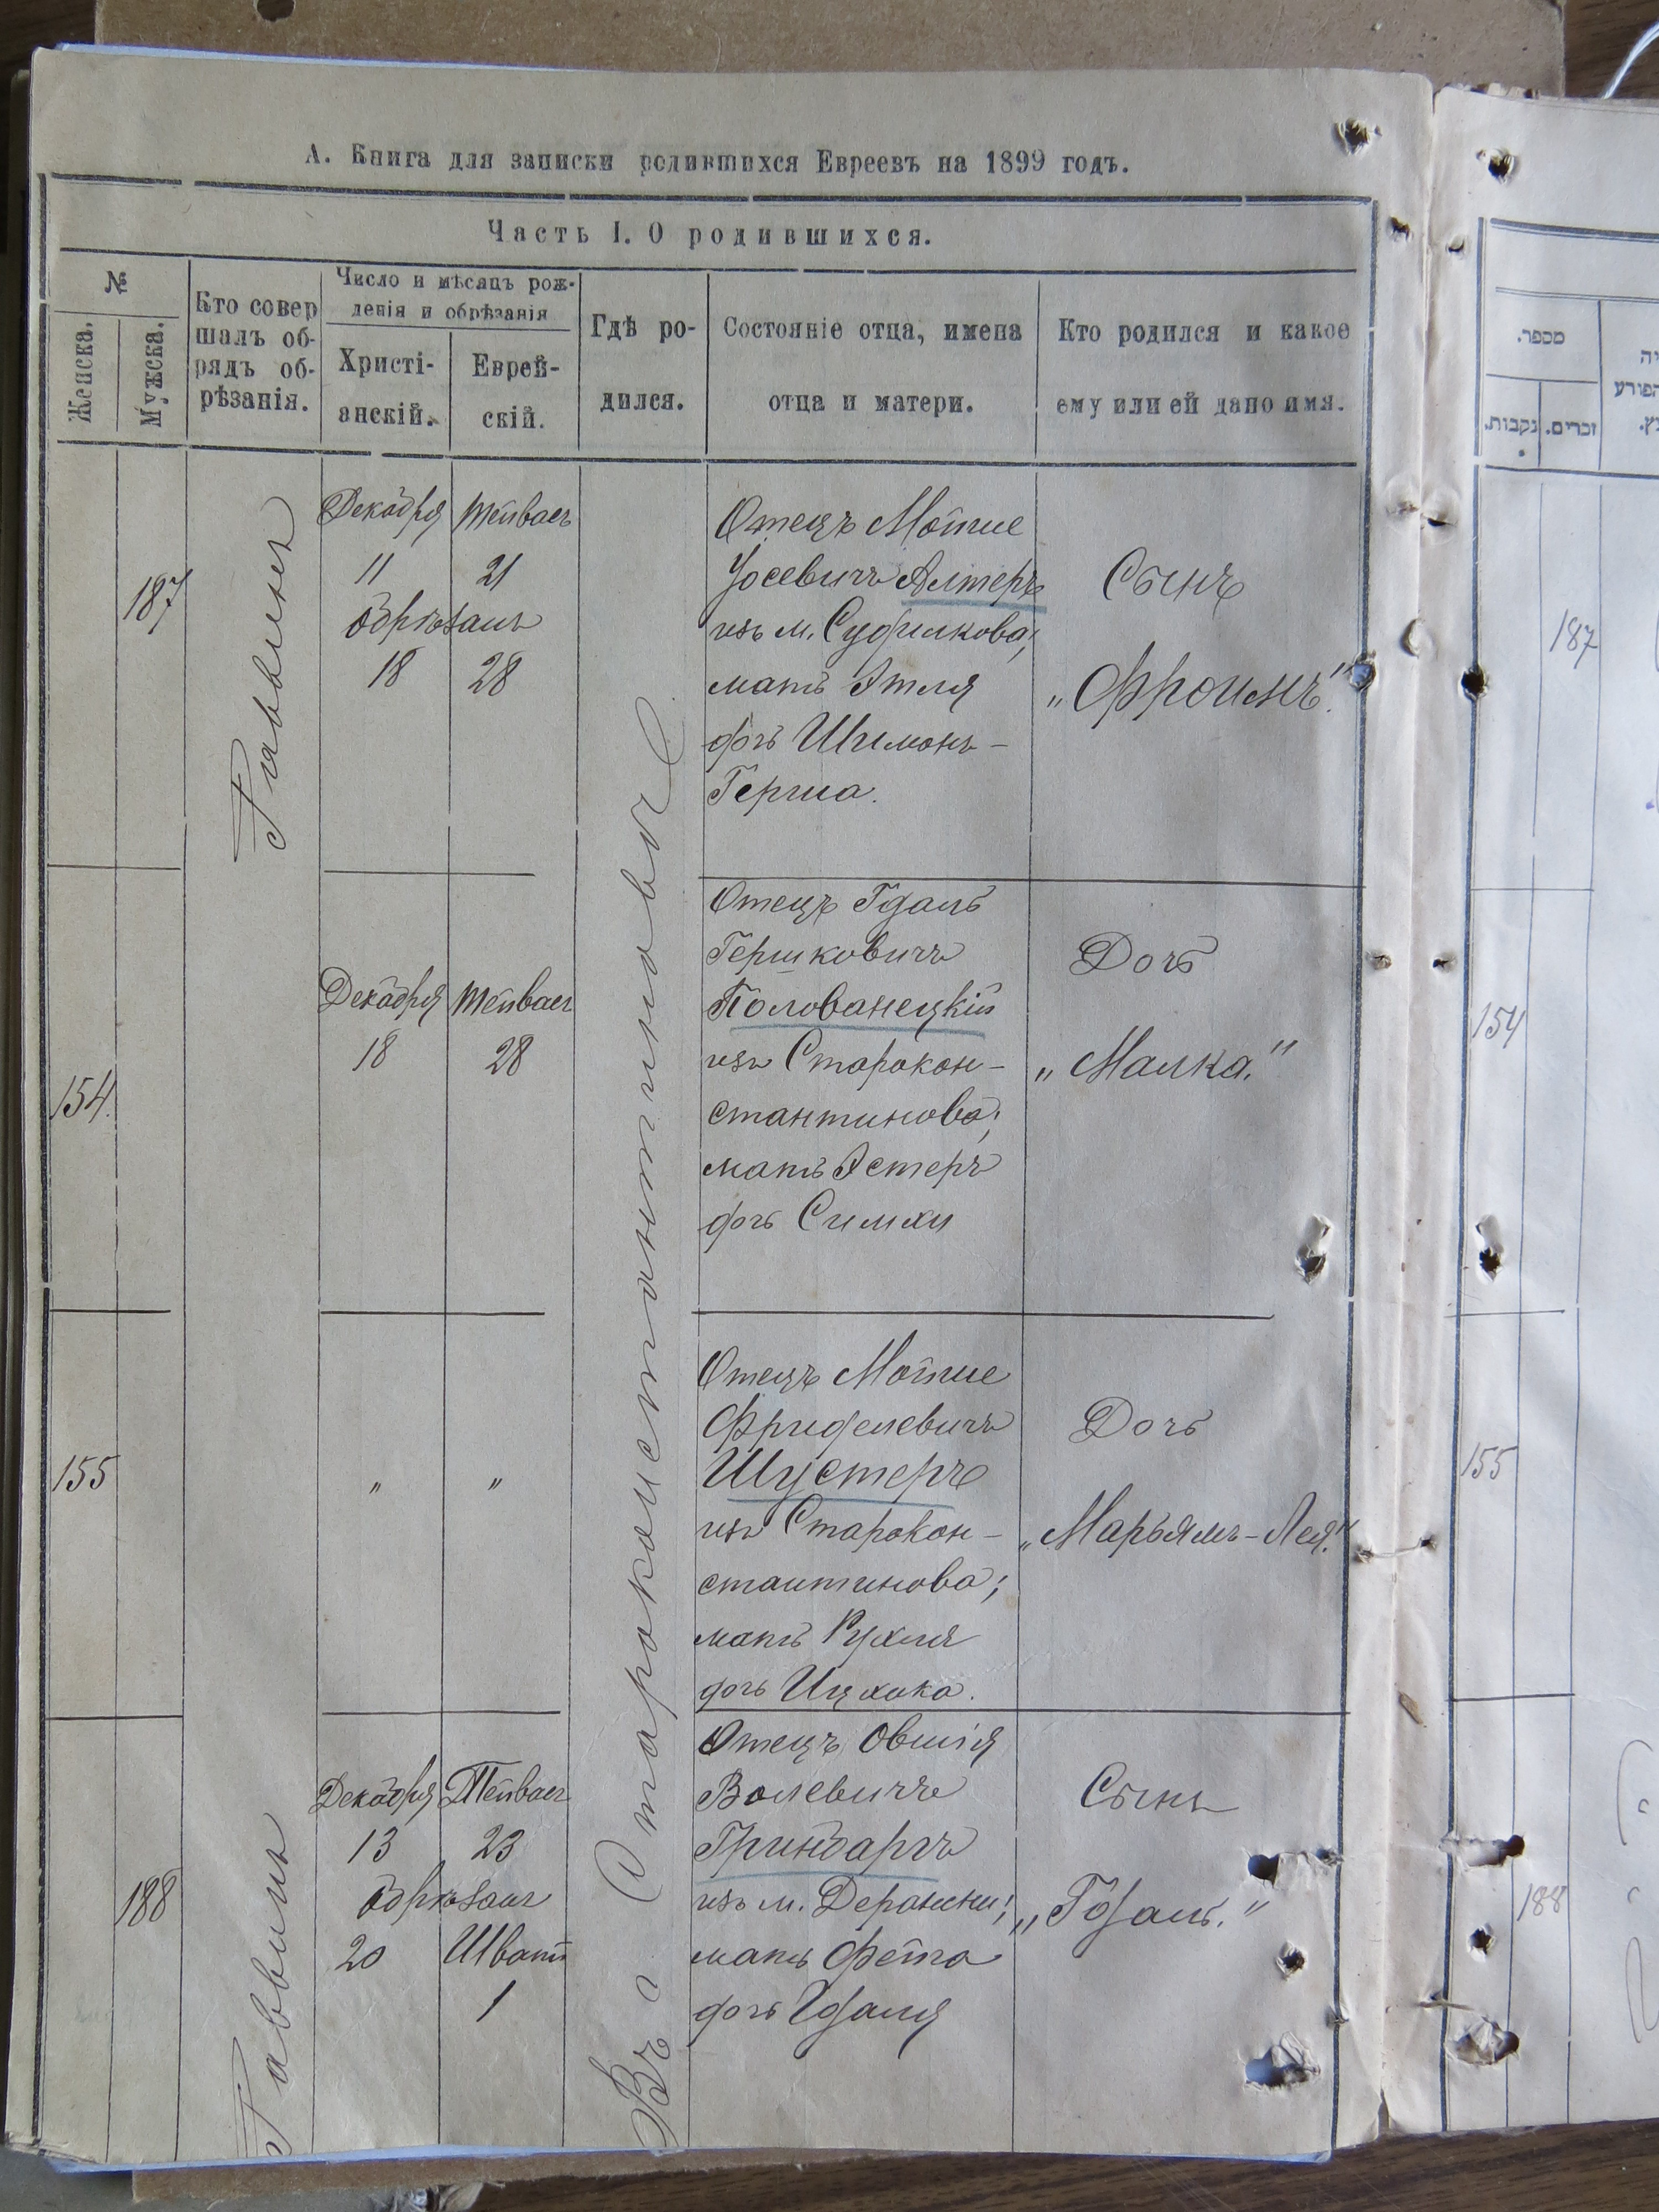 А. Книга для записки родившихся Евреевъ на 1899 годъ.
Часть I. О родившихся.
№
Женска.
Мужска.
Кто совер
шалъ об-
рядъ об-
рѣзанія.
Число и мѣсяцъ рож-
денія и обрѣзанія
Христі-
анскій.
Еврей-
скій.
Гдѣ ро-
дился.
Состояніе отца, имена
отца и матери.
Кто родился и какое
ему или ей дано имя.
187
Раввинъ
Декабря Тейвасъ
11 21
обрѣзанъ
18 28
Въ г. Староконстантиновѣ
Отецъ Мотие
Іосевичъ Алтеръ
изъ м. Судилкова;
мать Этля
дочь Шимонъ-
Герша.
Сынъ
„Фроимъ".
154.
Декабря Тейвасъ
18 28
Отецъ Гдаль
Гершковичъ
Полованецкій
изъ Старокон-
стантинова;
мать Эстеръ
дочь Симхи
Дочь
„Малка."
155
" "
Отецъ Мотие
Фриделевичъ
Шустеръ
изъ Старокон-
стантинова;
мать Рухля
дочь Ицхока.
Дочь
„Марьямъ-Лея."
188
Раввинъ
Декабря Тейвасъ
13 23
обрѣзанъ
20 Шватъ
1
Отецъ Овшія
Волевичъ
Гринбаргъ
изъ м. Деражни;
мать Фейга
дочь Гдаля
Сынъ
„Гдаль."
מספר.
נקבות.
זכרים.
187
154
155
188